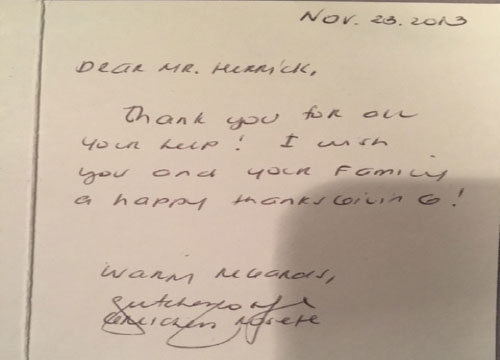 Nov. 23. 2013
Dear Mr. Herrick,
Thank you for all
your help! I wish
you and your family
a happy thanksgiving!
Warm regards,
Gretchen